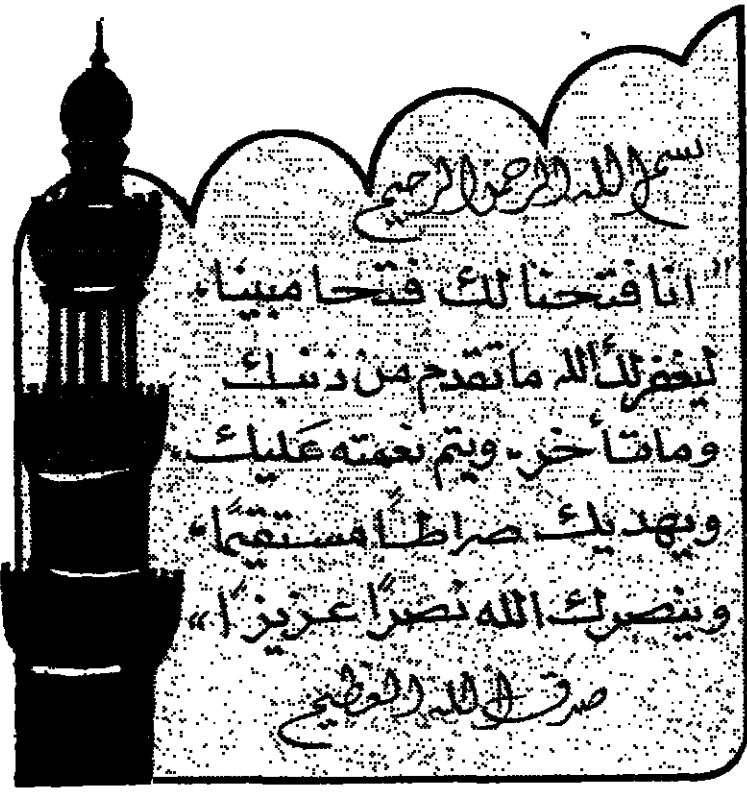 بسم الله الرحمن الرحيم
"انا فتحنا لك فتحا مبينا،
ليغفر لك الله ما تقدم من ذنبك
وما تأخر، ويتم نعمته عَليك
ويهديك صراطًا مستقيمًا،
وينصرك الله نصرًا عزيزًا»
صدق الله العظيم